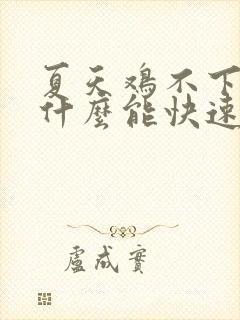 夏天鸡不下
什麼能快速
盧成實